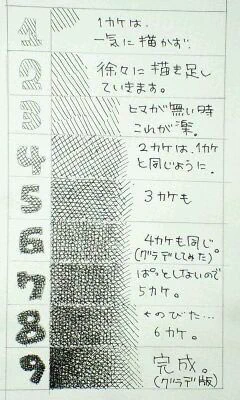 1
1カケは、
一気に描かず
2
徐々に描き足し
ていきます。
3
ヒマが無い時
これが楽。
4
2カケは、1カケ
と同じように。
5
3カケも
6
4カケも同じ。
(グラデしてみた)
7
ぱっとしないので
5カケ。
8
そのびた…
6カケ。
9
完成。
(グラデ版)